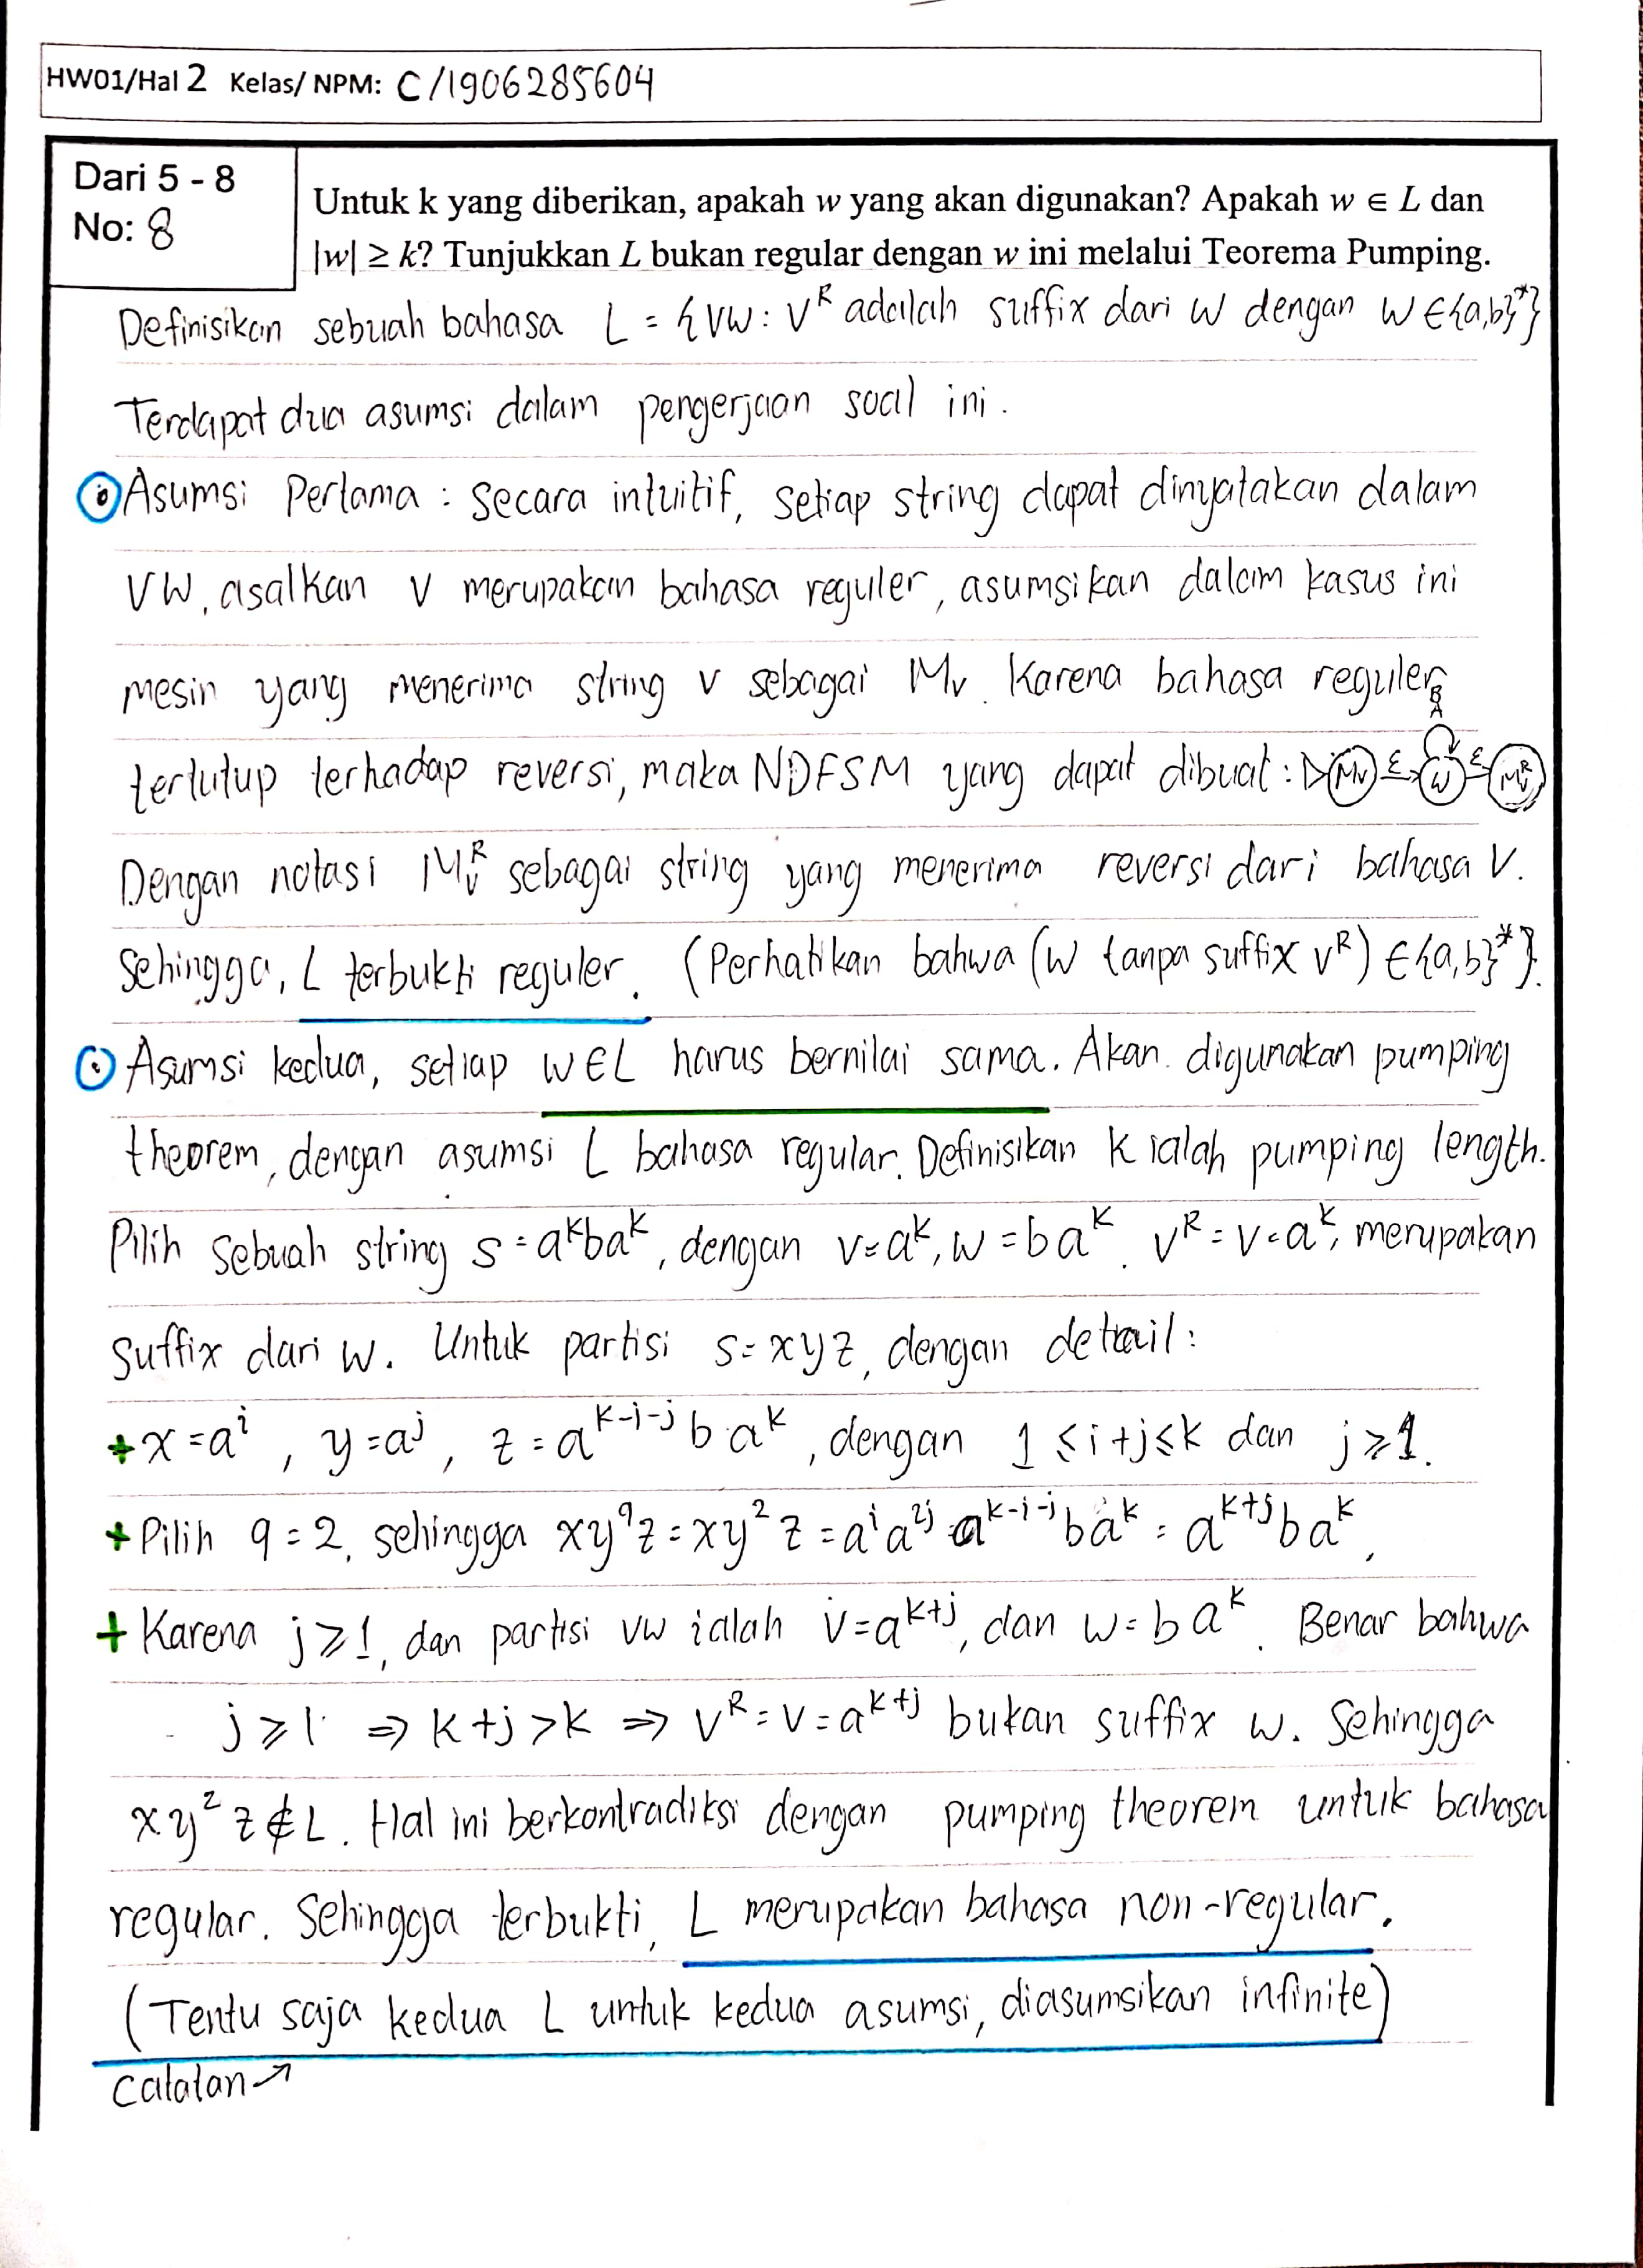 HW01/Hal 2 Kelas/ NPM: C/1906285604
Dari 5 - 8
No: 8
Untuk k yang diberikan, apakah w yang akan digunakan? Apakah w ∈ L dan
|w| ≥ k? Tunjukkan L bukan regular dengan w ini melalui Teorema Pumping.
Definisikan sebuah bahasa L = {VW : V^R adalah suffix dari W dengan W ∈ {a,b}*}
Terdapat dua asumsi dalam pengerjaan soal ini.
Asumsi Pertama : Secara intuitif, setiap string dapat dinyatakan dalam
VW, asalkan V merupakan bahasa reguler, asumsikan dalam kasus ini
mesin yang menerima string v sebagai Mv. Karena bahasa reguler
tertutup terhadap reversi, maka NDFSM yang dapat dibuat : Mv ε W ε Mv^R
Dengan notasi Mv^R sebagai string yang menerima reversi dari bahasa V.
Sehingga, L terbukti reguler. (Perhatikan bahwa (W tanpa suffix V^R) ∈ {a,b}*}.
Asumsi kedua, setiap W∈L harus bernilai sama. Akan digunakan pumping
theorem, dengan asumsi L bahasa regular. Definisikan K ialah pumping length.
Pilih sebuah string s = a^k b a^k, dengan v = a^k, w = b a^k. v^R = v = a^k, merupakan
suffix dari w. Untuk partisi s = xyz, dengan detail :
+ x = a^i , y = a^j , z = a^{k-i-j} b a^k , dengan 1 ≤ i+j ≤ k dan j ≥ 1.
+ Pilih q = 2, sehingga xy^q z = xy^2 z = a^i a^{2j} a^{k-i-j} b a^k = a^{k+j} b a^k,
+ Karena j ≥ 1, dan partisi vw ialah v = a^{k+j}, dan w = b a^k. Benar bahwa
j ≥ 1 ⇒ k+j > k ⇒ v^R = v = a^{k+j} bukan suffix w. Sehingga
xy^2 z ∉ L. Hal ini berkontradiksi dengan pumping theorem untuk bahasa
regular. Sehingga terbukti, L merupakan bahasa non-regular.
(Tentu saja kedua L untuk kedua asumsi, diasumsikan infinite)
Catatan ↗